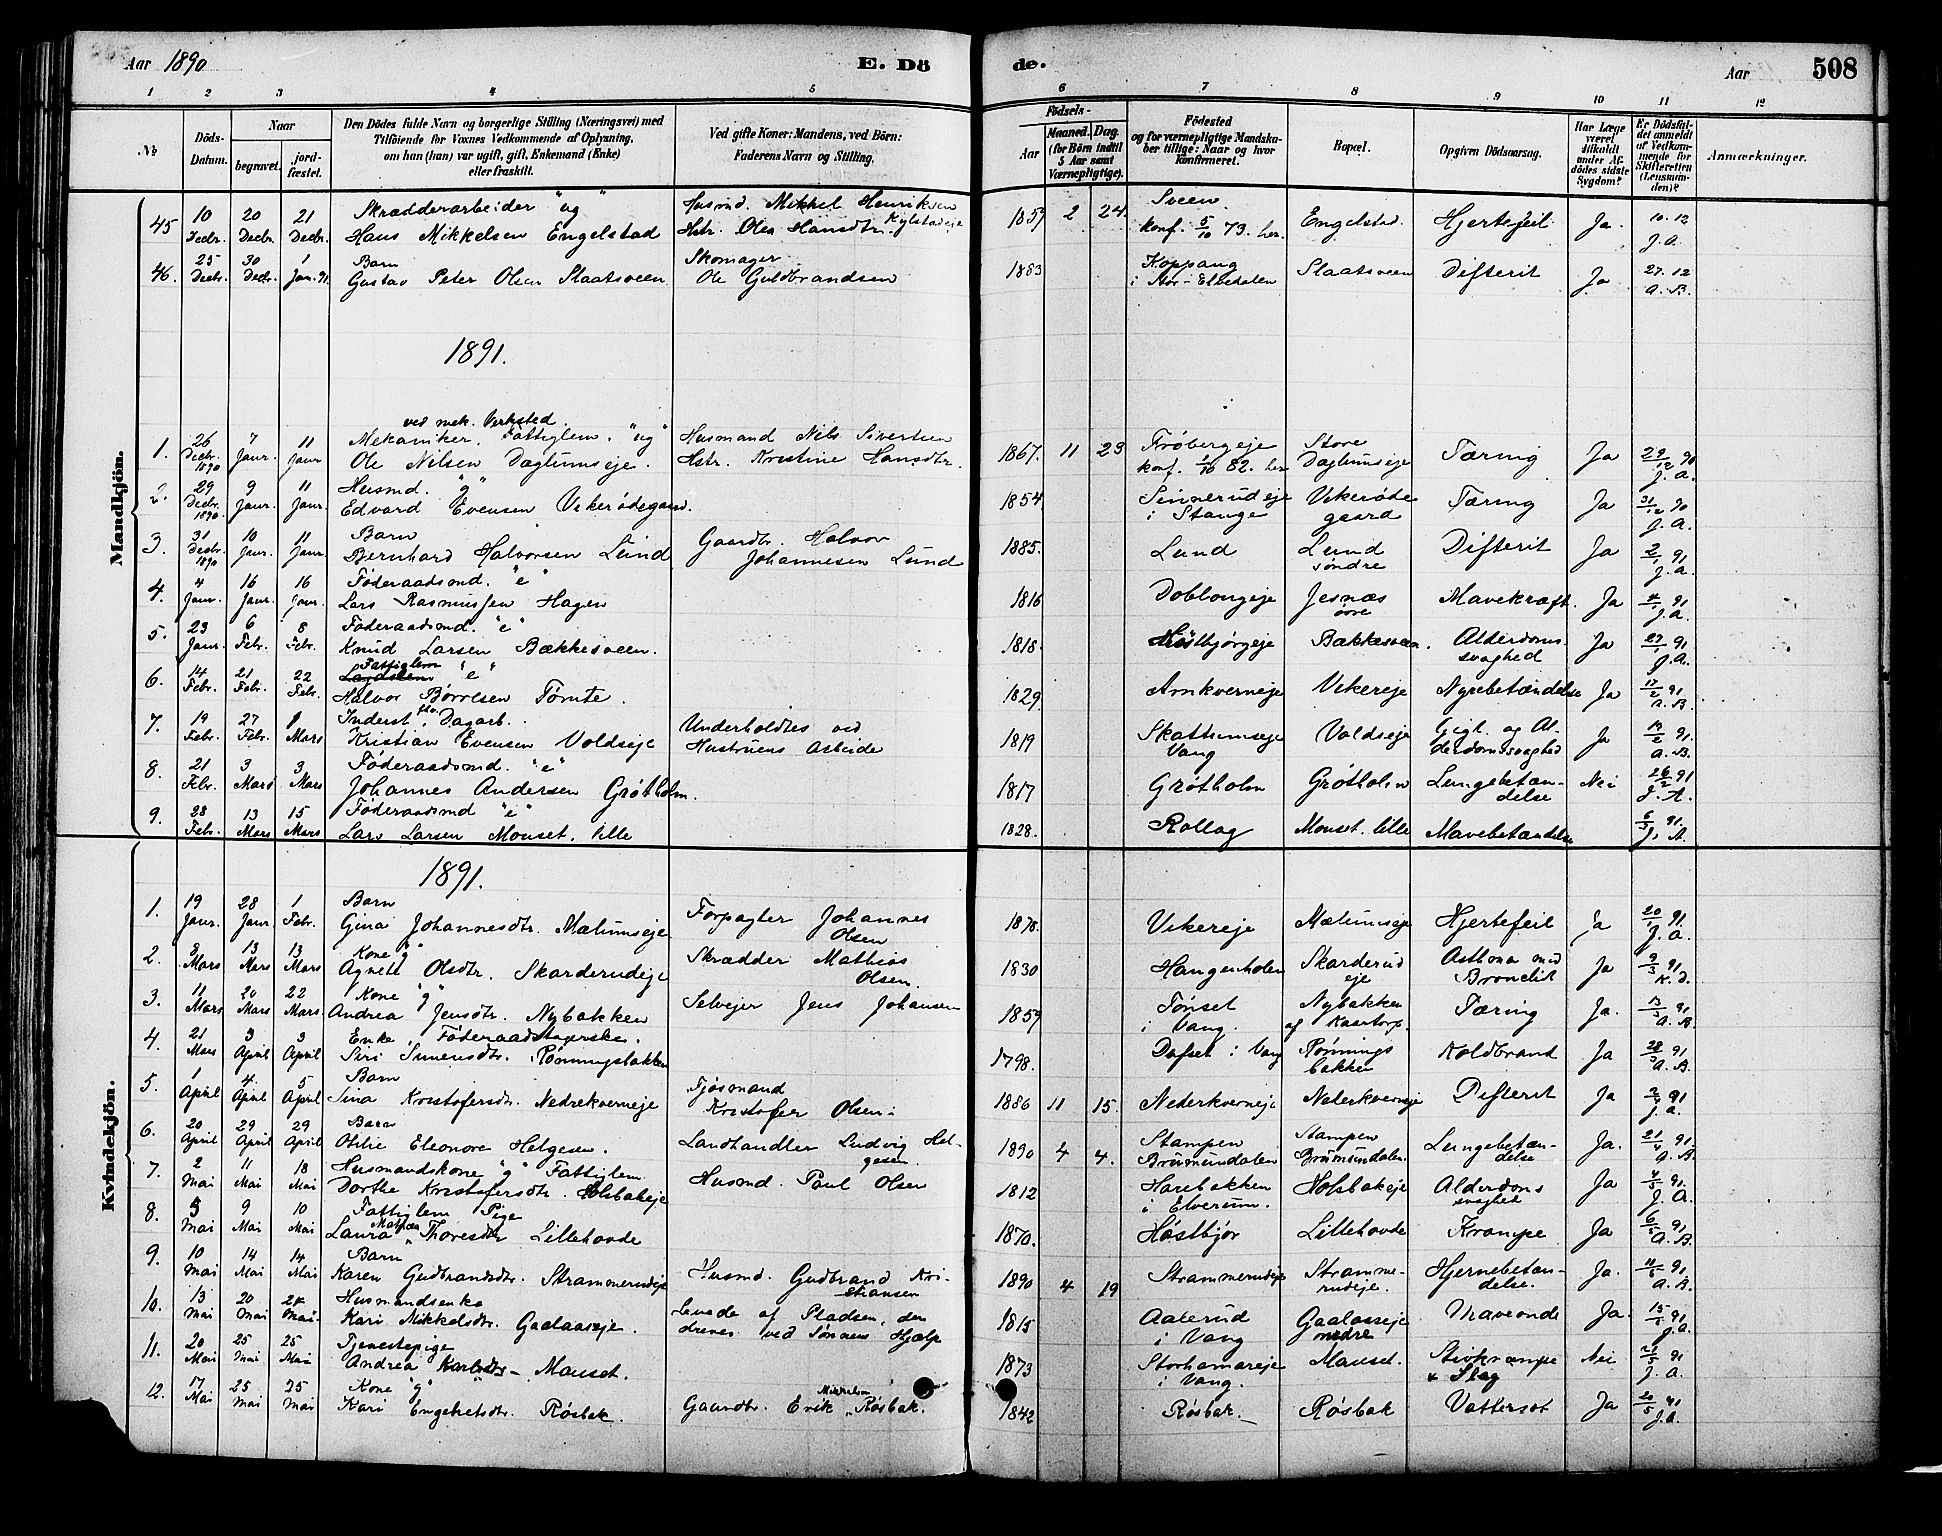 Aar 1890
E. Dö
de.
Aar
508
1 2 3 4 5 6 7 8 9 10 11 12
№
Döds-Datum.
Naar
begravet.
jord-fæstet.
Den Dödes fulde Navn og borgerlige Stilling (Næringsvei) med
Tilföiende for Voxnes Vedkommende af Oplysning,
om hun (han) var ugift, gift, Enkemand (Enke)
eller fraskilt.
Ved gifte Koner: Mandens, ved Börn:
Faderens Navn og Stilling.
Födsels-
Aar
Maaned. Dag.
(for Börn indtil
5 Aar samt
Værnepligtige).
Födested
og for værnepligtige Mandska-
ber tillige: Naar og hvor
konfirmeret.
Bopæl.
Opgiven Dödsaarsag.
Har Læge
været
tilkaldt
under Af-
dödes sidste
Sygdom?
Er Dödsfal-
det anmeldt
af Vedkom-
mende for
Skifteretten
(Lensman-
den)?
Anmærkninger.
Mandkjön.
45 10 Decbr. 20 Decbr. 21 Decbr. Skrædderarbeider "ug"
Hans Mikkelsen Engelstad Husmd. Mikkel Henriksen
Hstr. Olea Hansdtr. Kylstadeje 1859 2 24. Sveen
konf. 5/10 73. her. Engelstad Hjertefeil Ja. 10.12 J.A.
46. 25 Decbr. 30 Decbr. 1 Jan. 91. Barn
Gustav Peter Olsen Slaatsveen Skomager
Ole Guldbrandsen 1883 Koppang
i Stor-Elvedalen Slaatsveen Difterit Ja 27.12 A.B.
1891.
1. 26 Decbr. 1890 7 Janr. 11 Janr ved mek. Verksted.
Mekaniker. Fattiglem. "ug"
Ole Nilsen Daglumseje. Husmand Nils Sivertsen
Hstr. Kristine Hansdtr. 1867. 11 23 Frøbergeje
konf. 1/10 82. her Store
Daglumseje Tæring Ja 29/12 90 J.A.
2. 29 Decbr. 1890. 9 Janr. 11 Janr. Husmd. "g"
Edvard Evensen Vikerødegaard. 1854 Sinnerudeje
i Stange Vikerøde
gaard Tæring Ja 31/12 90 J.A.
3. 31 Decbr. 1890 10 Janr. 11 Janr. Barn
Bernhard Halvorsen Lund Gaardbr. Halvor
Johannesen Lund 1885. Lund Lund
søndre Difterit Ja 2/1 91. J.A.
4. 4 Janr. 16 Janr. 16 Janr. Føderaadsmd. "e"
Lars Rasmussen Hagen 1816 Doblougeje Jesnæs
øvre Mavekræft. Ja 4/1 91 J.A.
5. 23 Janr. 6 Febr. 8 Febr. Føderaadsmd. "e"
Knud Larsen Bækkesveen. 1818. Høstbjørgeje Bækkesveen. Alderdoms-
svaghed Ja 27/1 91. J.A.
6. 14 Febr. 21 Febr. 22 Febr. Fattiglem "e"
Halvor Børresen Tømte. 1829 Arnkverneje Vikereje Nyrebetændelse Ja 17/2 91. A.B.
7. 19 Febr. 27 Febr. 1 Mars Inderst, Dagarb.
Kristian Evensen Voldseje Underholdtes ved
Hustruens Arbeide 1819 Skattumseje
Vang Voldseje Gigt. og Al-
derdomssvaghed Ja A.B.
8. 21 Febr. 3 Mars 3 Mars Føderaadsmd. "e"
Johannes Andersen Grøtholm. 1817 Grøtholm Grøtholm Lungebetæn-
delse Nei 26/2 91 J.A.
9. 28 Febr. 13 Mars 15 Mars Føderaadsmd "e"
Lars Larsen Mouset. lille 1828. Rollag Mouset. lille Mavebetændelse 5/3 91. J.A.
Kvindekjön.
1891.
1. 19 Janr. 28 Janr 1 Febr. Barn
Gina Johannesdtr. Mælumseje Forpagter Johannes
Olsen 1878. Vikereje Mælumseje Hjertefeil Ja 20/1 91. J.A.
2. 8 Mars 13 Mars 13. Mars Kone "g"
Agnett Olsdtr. Skarderudeje Skrædder Mathias
Olsen. 1830 Haugenholen Skarderud
eje Asthma med
Bronchit Ja 9/3 91
3. 11 Mars 20 Mars 22 Mars Kone "g"
Andrea Jensdtr. Nybakken Selvejer Jens Johansen 1859 Tønset
i Vang. Nybakken
af Kaatorp. Tæring Ja. 13/3 91. A.B.
4. 21 Mars 3 April 3 April Enke Føderaadstagerske.
Siri Simensdtr. Rønningsbakken 1798. Dufset i Vang Rønnings
bakken Koldbrand Ja 28/3 91 A.B.
5. 1 April 4. April 5 April Barn
Sina Kristofersdtr. Nedrekverneje Fjøsmand
Kristofer Olsen. 1886 11 15. Nederkverneje Nederkverneje Difterit Ja 91 J.A.
6. 20 April 29 April 29 April Barn
Otilie Eleonore Helgesen. Landhandler Ludvig Hel-
gesen. 1890 4 4. Stampen
Brumundalen Stampen
Brumundalen. Lungebetæn-
delse Ja. 21/4 91. A.B.
7. 2 Mai 11 Mai 18 Mai Husmandskone "g" Fattiglem
Dorthe Kristofersdtr. Holsbakeje Husmd. Paul Olsen 1812 Harebakken
i Elverum. Holsbakeje Alderdoms
svaghed Ja 4/5 91. J.A.
8. 5 Mai 9 Mai 10 Mai Fattiglem Pige
Laura Mathea Thoresdtr Lillehovde 1870. Høstbjør Lillehovde Krampe Ja 6/5 91 A.B.
9. 10 Mai 14 Mai 14 Mai Barn
Karen Gudbrandsdtr. Strammerudeje Husmd. Gudbrand Kri-
stiansen 1890 4 19 Strammerudeje Stramme-
rudeje. Hjernebetæn-
delse. Ja. 11/5 91. A.B.
10. 13 Mai 20 Mai 24 Mai. Husmandsenke
Kari Mikkelsdtr. Gaalaaseje. Levede af Pladsen, den
dreves ved Sønnens Hjælp 1815 Aakerud
i Vang Gaalaaseje
nedre Maveonde Ja. 15/5 91. J.A.
11. 20 Mai 25 Mai 25 Mai Tjenestepige
Andrea Karlsdtr. Mauset. 1873 Storhamareje
i Vang. Mauset. Stivkrampe
+ Slag Nei 21/5 91 J.A.
12. 17 Mai 25 Mai 25 Mai Kone "g"
Kari Engebretsdtr. Røsbak. Gaardbr. Erik Mikkelsen Røsbak. 1842 Røsbak. Røsbak Vattersot Ja 20/5 91 J.A.